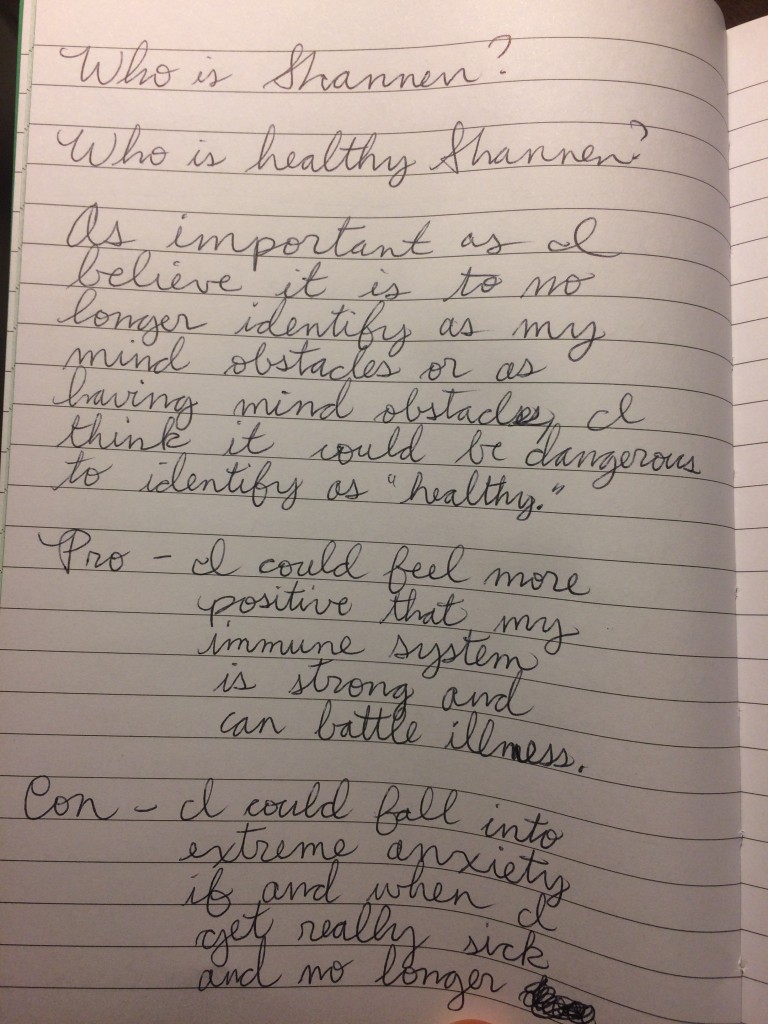 Who is Shannen?
Who is healthy Shannen?
As important as I
believe it is to no
longer identify as my
mind obstacles or as
having mind obstacles, I
think it could be dangerous
to identify as "healthy."
Pro - I could feel more
positive that my
immune system
is strong and
can battle illness.
Con - I could fall into
extreme anxiety
if and when I
get really sick
and no longer